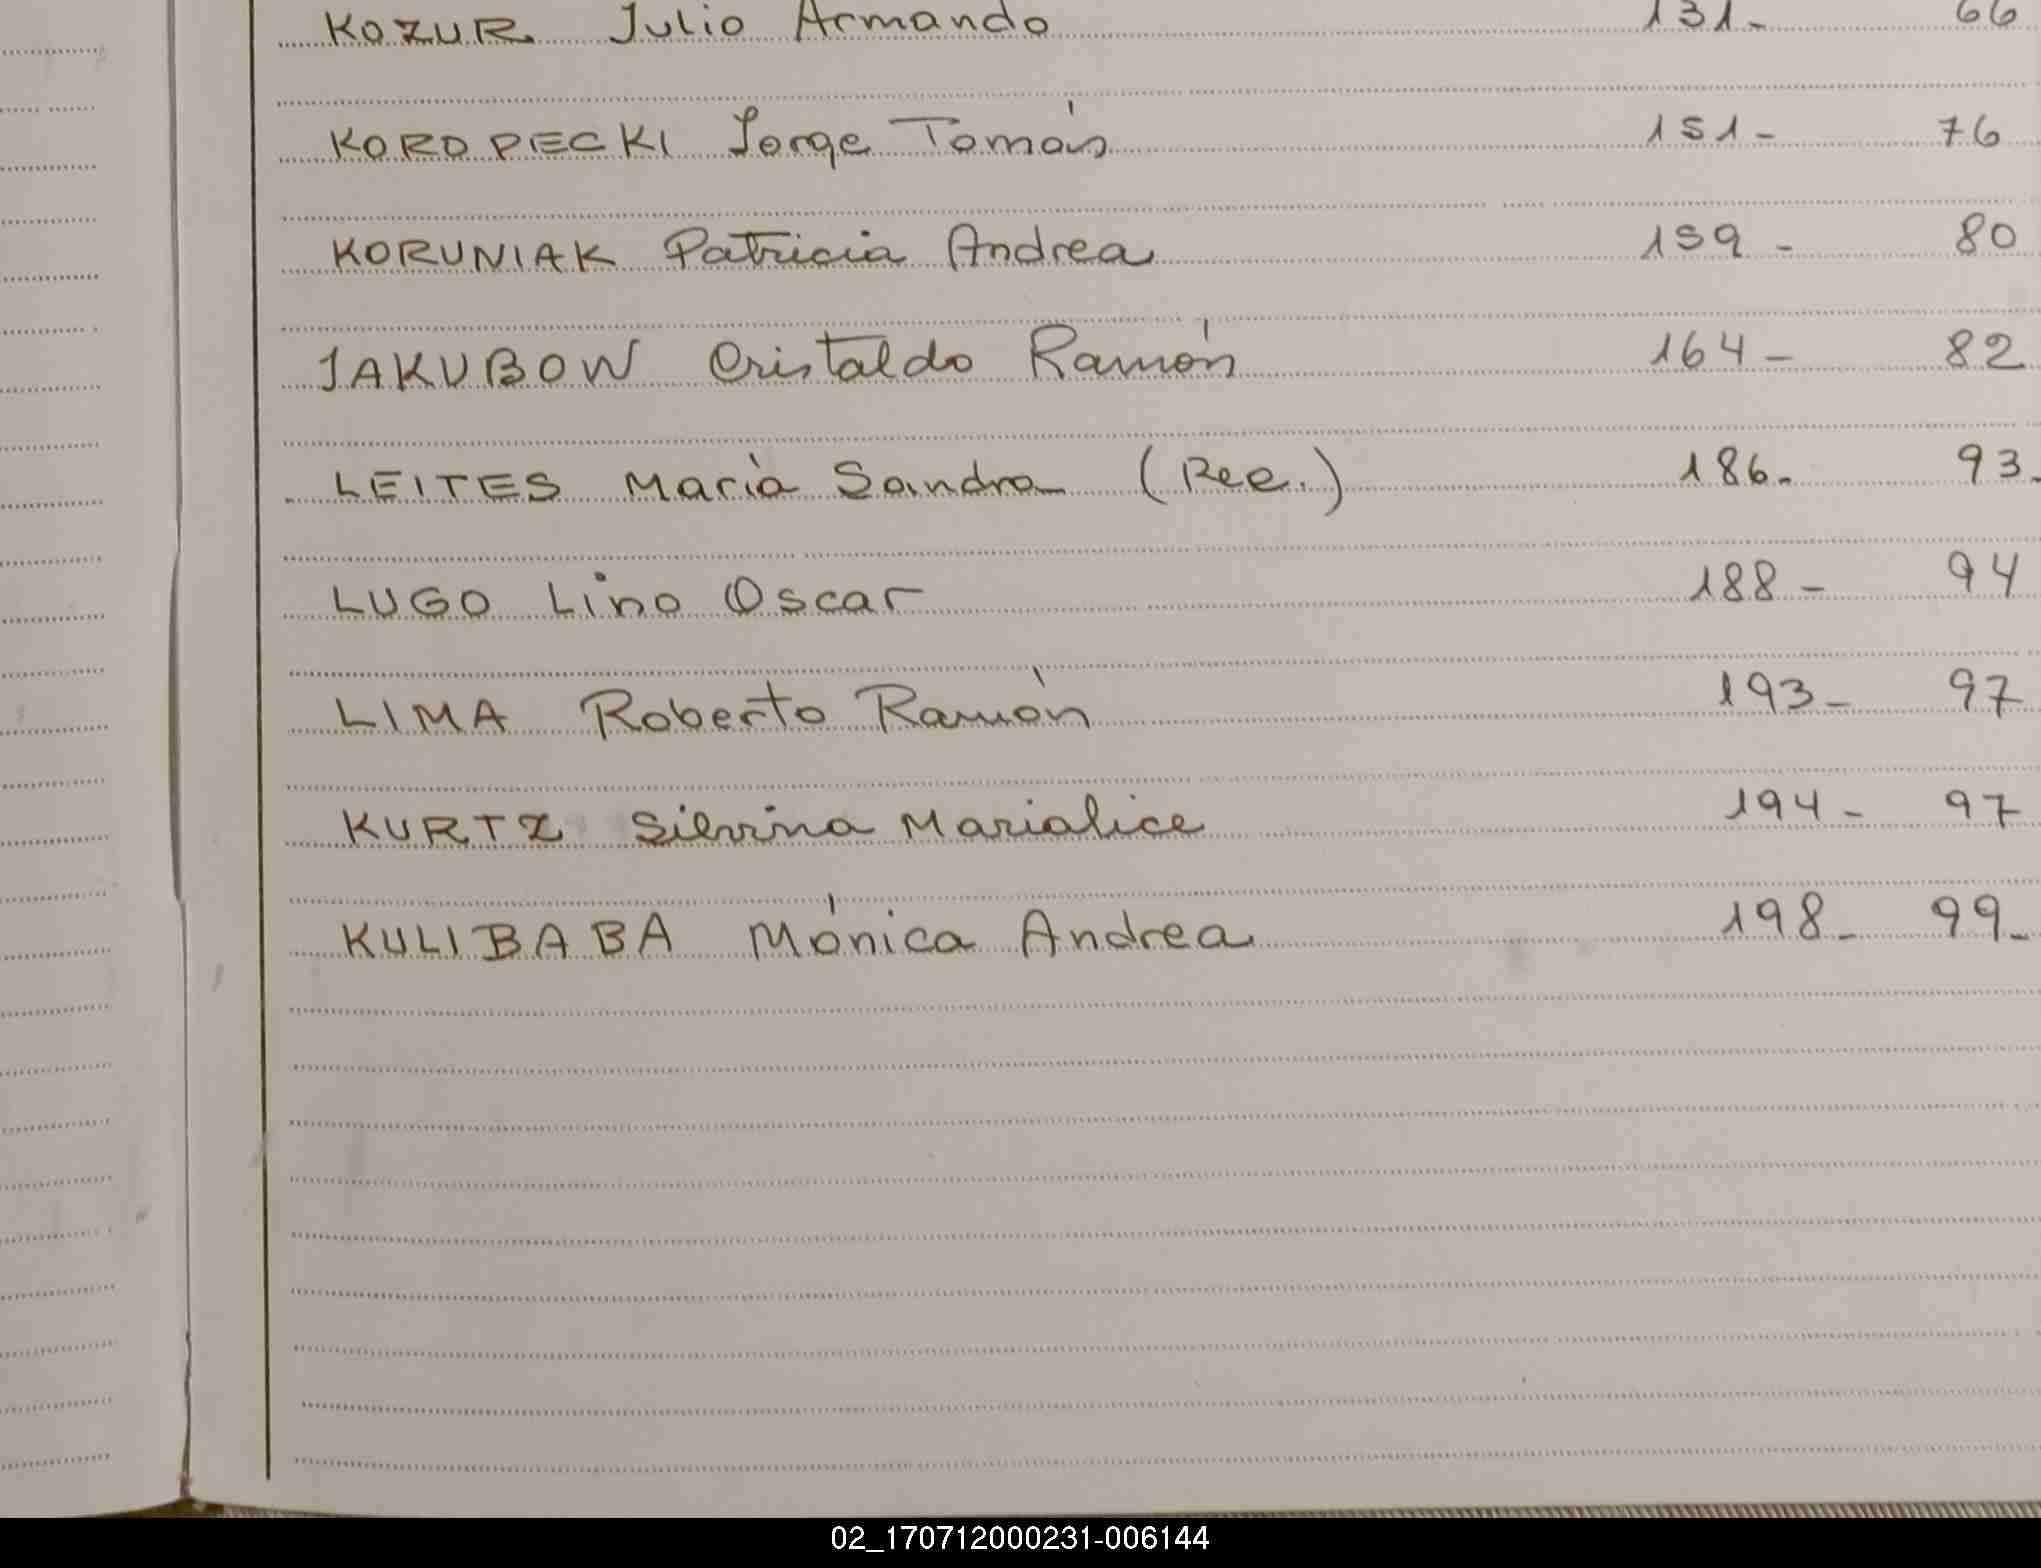 KOZUR Julio Armando 131- 66
KOROPECKI Jorge Tomás 151- 76
KORUNIAK Patricia Andrea 159- 80
JAKUBOW Cristaldo Ramón 164- 82
LEITES Marià Sandra (Rec.) 186. 93.
LUGO Lino Oscar 188- 94
LIMA Roberto Ramón 193- 97
KURTZ Silvina Marialice 194- 97
KULIBABA Mónica Andrea 198- 99-
02_170712000231-006144